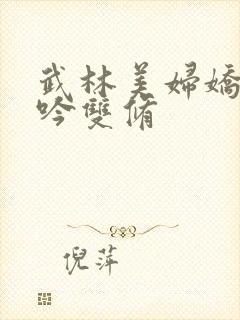 武林美婦嬌
吟雙脩
倪萍